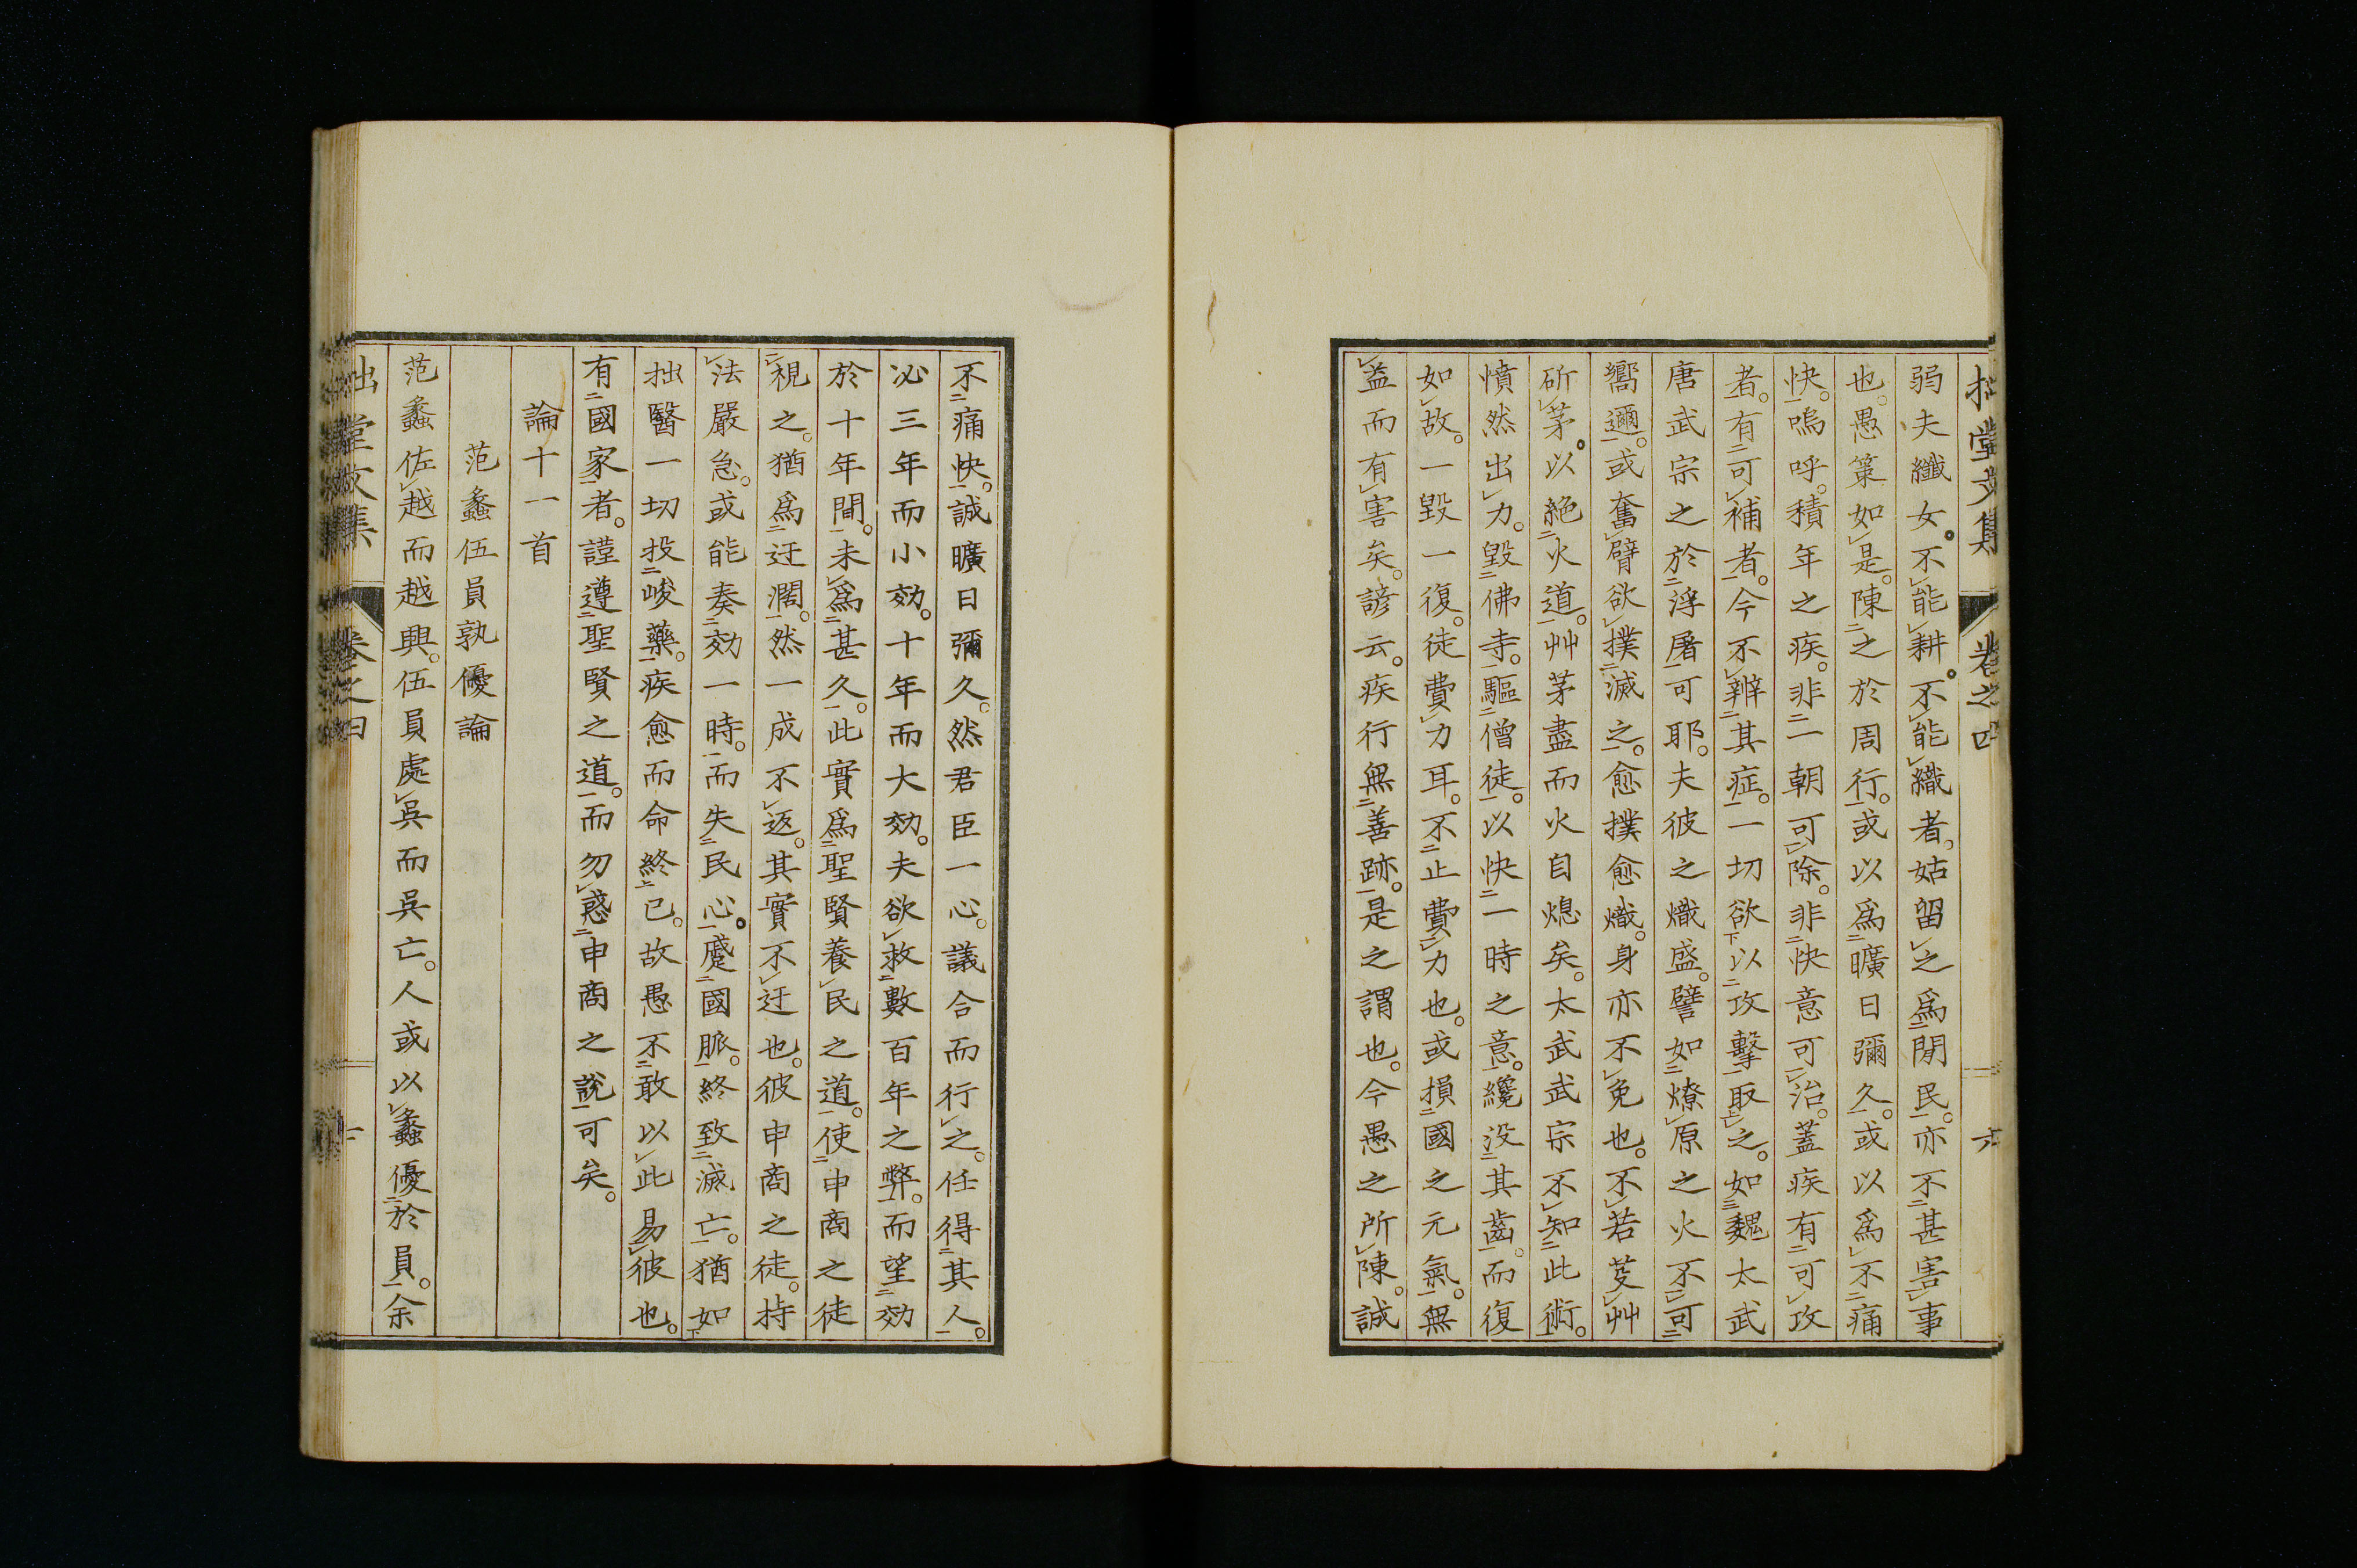 拙堂文集 卷之四 六
弱夫纖女。不能耕。不能織者。姑留之爲閒民。亦不甚害事
也。愚策如是。陳之於周行。或以爲曠日彌久。或以爲不痛
快。嗚呼。積年之疾。非一朝可除。非快意可治。蓋疾有可攻
者。有可補者。今不辨其症。一切欲以攻擊取之。如魏太武
唐武宗之於浮屠可耶。夫彼之熾盛。譬如燎原之火不可
嚮邇。或奮臂欲撲滅之。愈撲愈熾。身亦不免也。不若芟艸
斫茅。以絶火道。艸茅盡而火自熄矣。太武武宗不知此術。
憤然出力。毀佛寺。驅僧徒。以快一時之意。纔没其齒。而復
如故。一毀一復。徒費力耳。不止費力也。或損國之元氣。無
益而有害矣。諺云。疾行無善跡。是之謂也。今愚之所陳。誠
不痛快。誠曠日彌久。然君臣一心。議合而行之。任得其人。
必三年而小効。十年而大効。夫欲救數百年之弊。而望効
於十年間。未爲甚久。此實爲聖賢養民之道。使申商之徒
視之。猶爲迂濶。然一成不返。其實不迂也。彼申商之徒。持
法嚴急。或能奏効一時。而失民心。蹙國脈。終致滅亡。猶如
拙醫一切投峻藥。疾愈而命終已。故愚不敢以此易彼也。
有國家者。謹遵聖賢之道。而勿惑申商之説可矣。
論十一首
范蠡伍員孰優論
范蠡佐越而越興。伍員處吳而吳亡。人或以蠡優於員。余
拙堂文集 卷之四